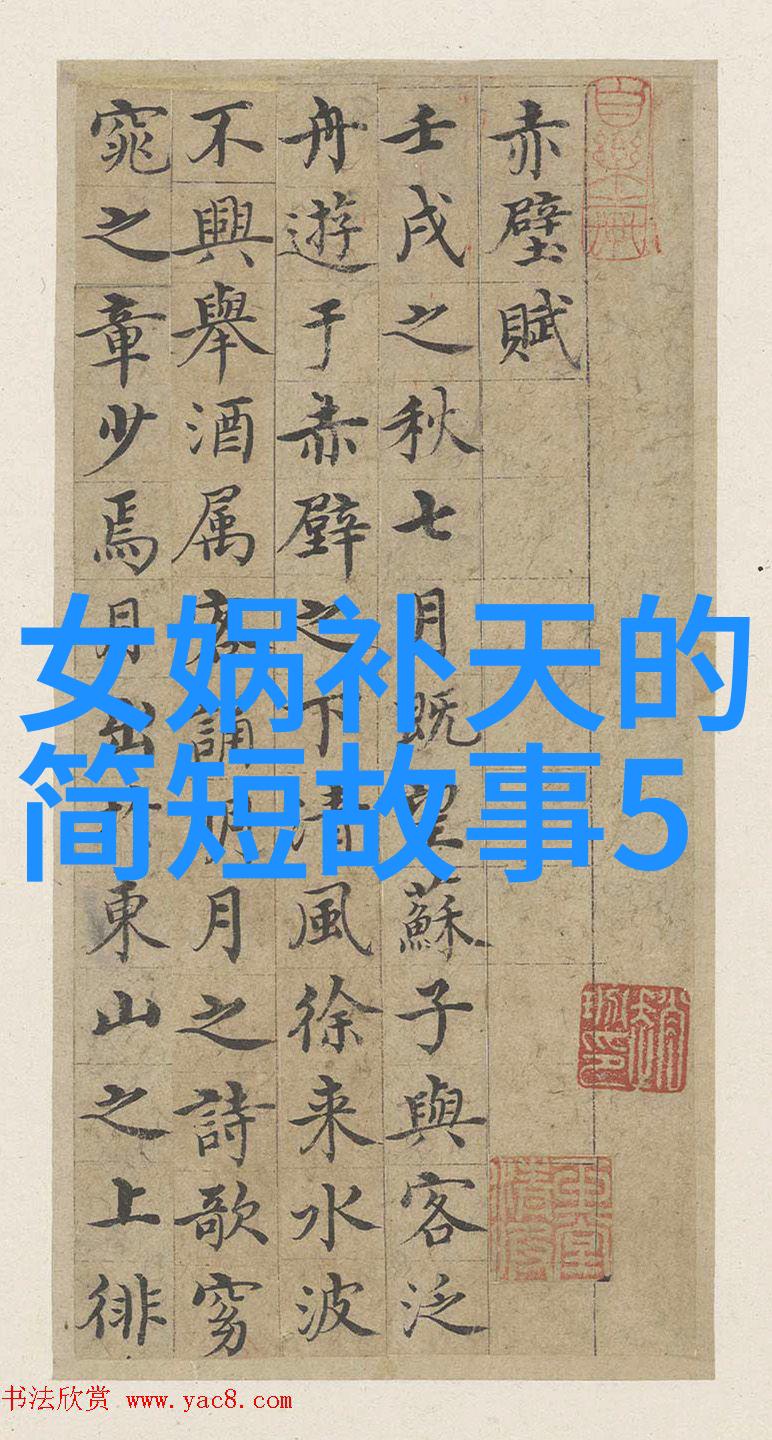 赤壁賦
壬戌之秋七月既望蘇子與客泛
舟遊于赤壁之下清風徐来水波
不興舉酒属客誦明月之詩歌窈
窕之章少焉月出於東山之上徘
女娲补天的
简短故事5
书法欣赏 www.yac8.com